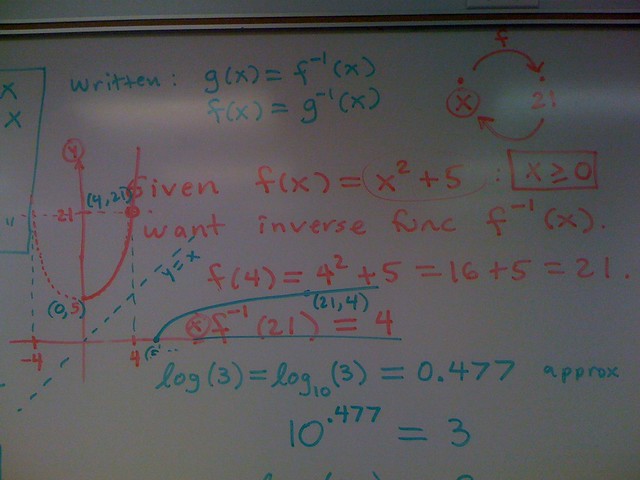 written: g(x) = f⁻¹(x)
f(x) = g⁻¹(x)
f
x 21
x
x
y
Given f(x) = x² + 5 : x ≥ 0
(4,21)
21
"
want inverse func f⁻¹(x).
y = x
f(4) = 4² + 5 = 16 + 5 = 21.
(0,5)
(21,4)
x f⁻¹(21) = 4
-4 4
log(3) = log₁₀(3) = 0.477 approx
10^.477 = 3